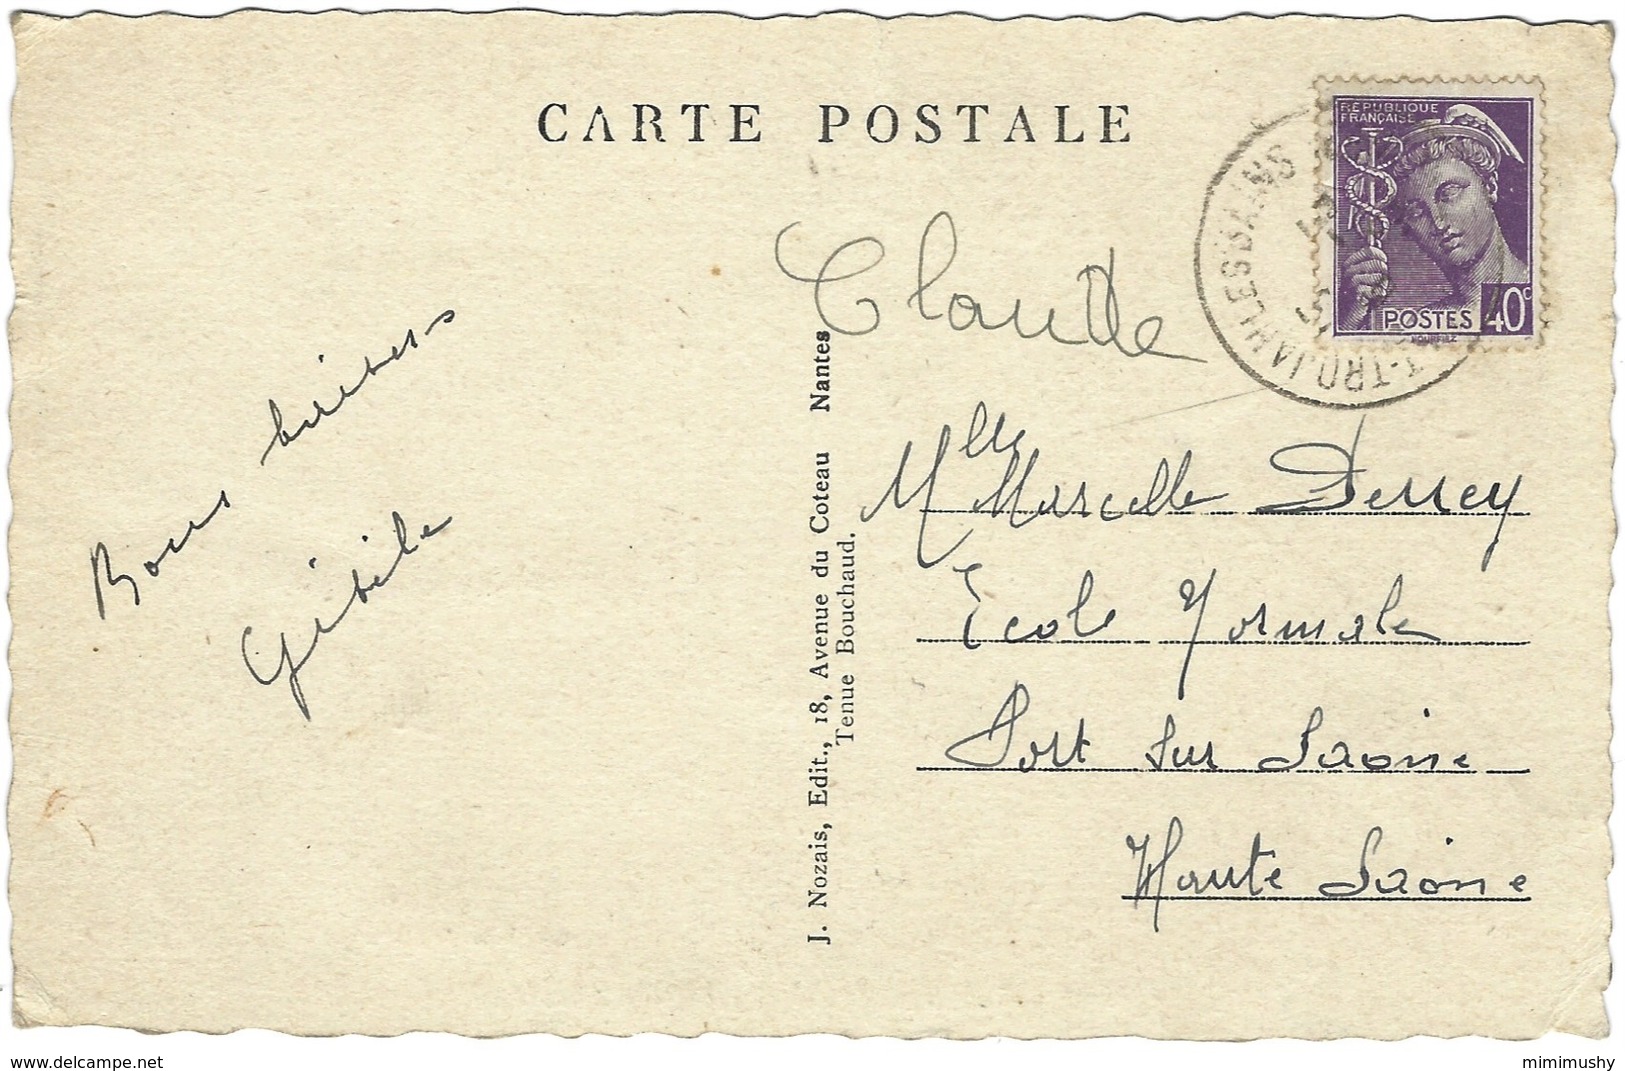 CARTE POSTALE
RÉPUBLIQUE
FRANÇAISE
POSTES 40c
T-TROJAN LES BAINS
Claude
Bons baisers
Gisèle
J. Nozais, Edit., 18, Avenue du Coteau Nantes
Tenue Bouchaud.
Mlle Marcelle Derrey
École Normale
Port sur Saône
Haute Saône
www.delcampe.net
mimimushy